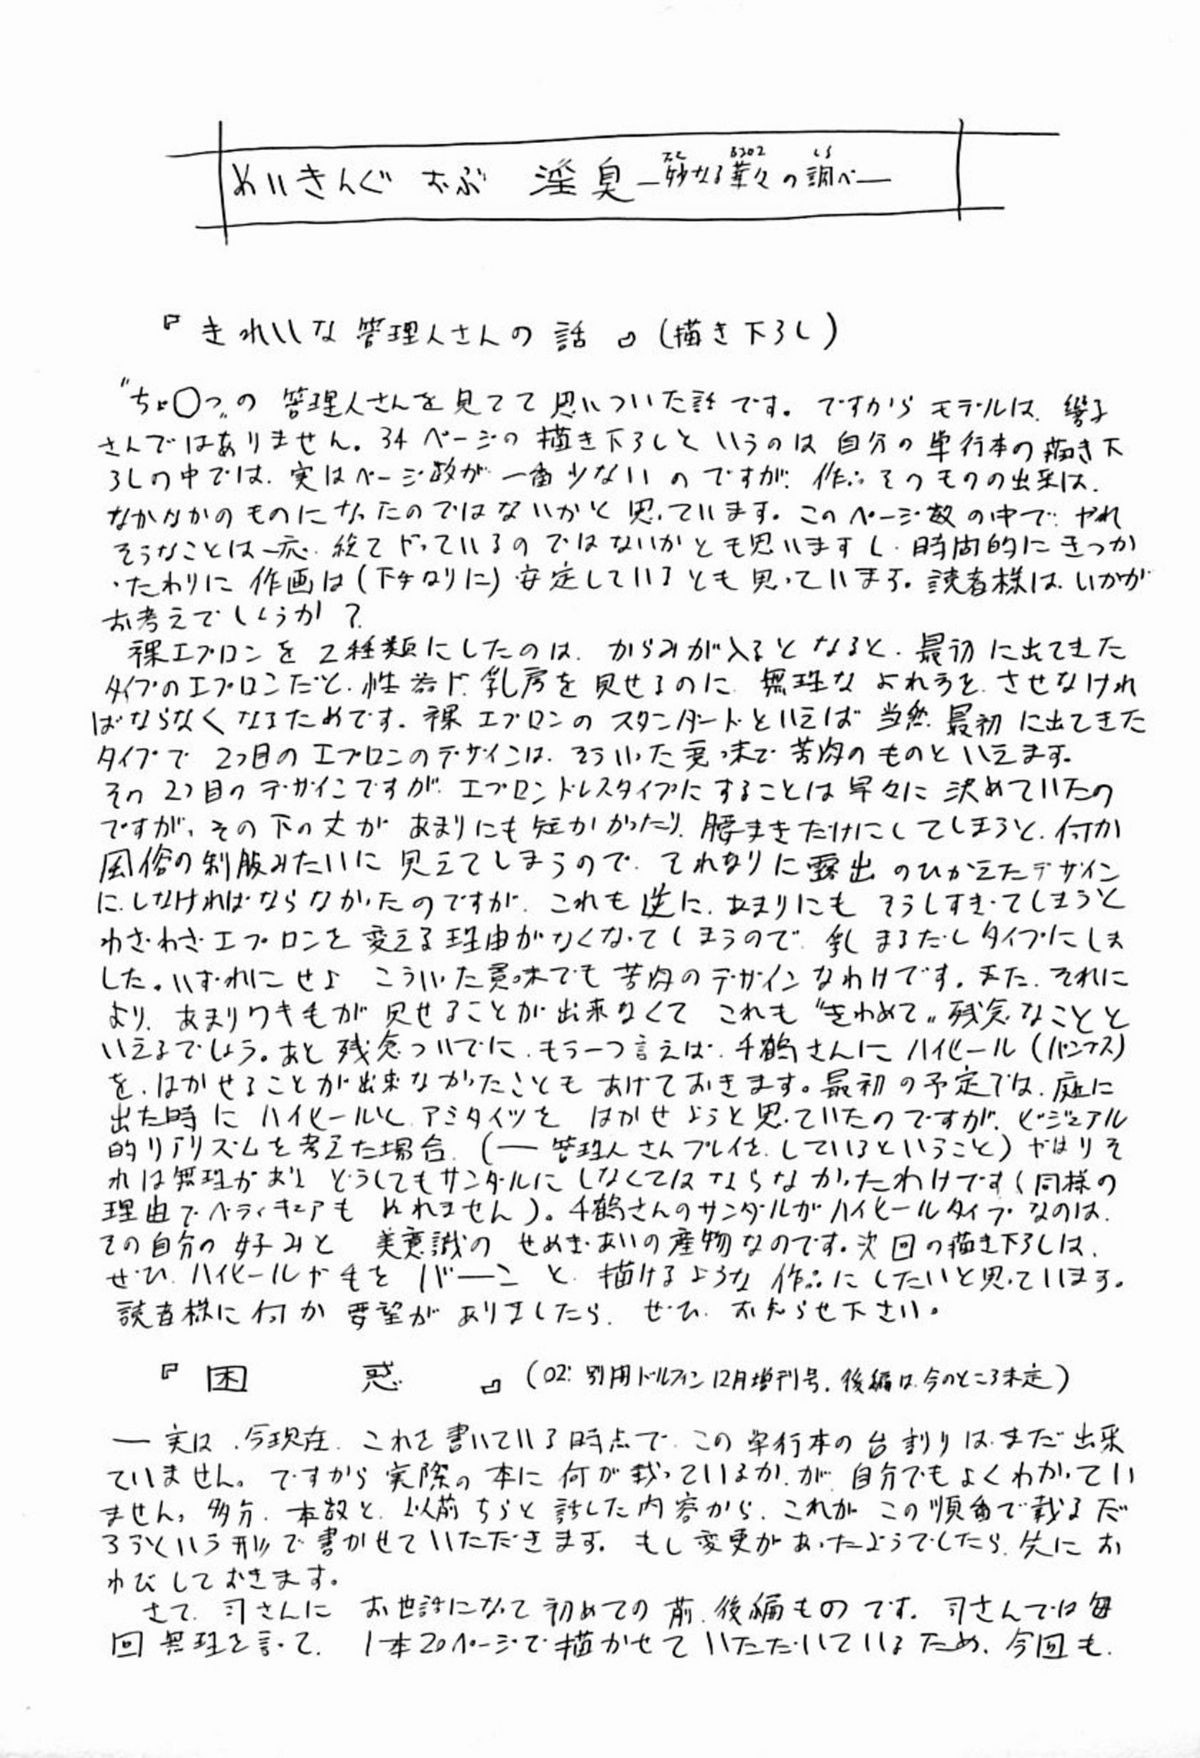 めいきんぐ おぶ 淫臭 ―妙なる華々の調べ―
『きれいな管理人さんの話』(描き下ろし)
"ちょ〇っ"の 管理人さんを見てて思いついた話です。ですからモデルは、響子
さんではありません。34ページの描き下ろしというのは自分の単行本の描き下
ろしの中では、実はページ数が一番少ないのですが、作品そのものの出来は、
なかなかのものになったのではないかと思っています。このページ数の中で、やれ
そうなことは一応、総てやっているのではないかとも思いますし、時間的にきつか
ったわりに作画は(下手なりに)安定しているとも思っています。読者様は、いかが
お考えでしょうか?
裸エプロンを2種類にしたのは、からみが入るとなると、最初に出てきた
タイプのエプロンだと、性器や乳房を見せるのに、無理なよれ方を、させなけれ
ばならなくなるためです。裸エプロンのスタンダードといえば当然、最初に出てきた
タイプで2つ目のエプロンのデザインは、そういった意味で苦肉のものといえます。
その2つ目のデザインですが、エプロンドレスタイプにすることは早々に決めていたの
ですが、その下の丈があまりにも短かかったり、腰まきだけにしてしまうと、何か
風俗の制服みたいに見えてしまうので、それなりに露出のひかえたデザイン
に、しなければならなかったのですが、これも逆に、あまりにもそうしすぎてしまうと
わざわざエプロンを変える理由がなくなってしまうので、乳まるだしタイプにしま
した。いずれにせよ こういった意味でも苦肉のデザインなわけです。また、それに
より、あまりワキ毛が見せることが出来なくて これも"きわめて"残念なことと
いえるでしょう。あと残念ついでに、もう一つ言えば、千鶴さんにハイヒール(パンプス)
を、はかせることが出来なかったこともあげておきます。最初の予定では、庭に
出た時にハイヒールと、アミタイツをはかせようと思っていたのですが、ビジュアル
的リアリズムを考えた場合、(―管理人さんプレイを、しているということ)やはりそ
れは無理があり、どうしてもサンダルにしなくてはならなかったわけです(同様の
理由でペディキュアもぬれません)。千鶴さんのサンダルがハイヒールタイプなのは、
その自分の好みと 美意識のせめぎあいの産物なのです。次回の描き下ろしは、
ぜひ、ハイヒールや毛をバーンと、描けるような作品にしたいと思っています。
読者様に何か要望がありましたら、ぜひ、お知らせ下さい。
『困惑』(02:別冊ドルフィン12月増刊号、後編は今のところ未定)
―実は、今現在、これを書いている時点で、この単行本の台割りは、まだ出来
ていません。ですから実際の本に何が載っているか、が、自分でもよくわかってい
ません。多分、本数と、以前ちらと話した内容から、これが、この順番で載るだ
ろうという形で書かせていただきます。もし変更があったようでしたら、先にお
わびしておきます。
さて、司さんにお世話になって初めての前、後編ものです。司さんでは毎
回無理を言って、1本20ページで描かせていただいているため、今回も、